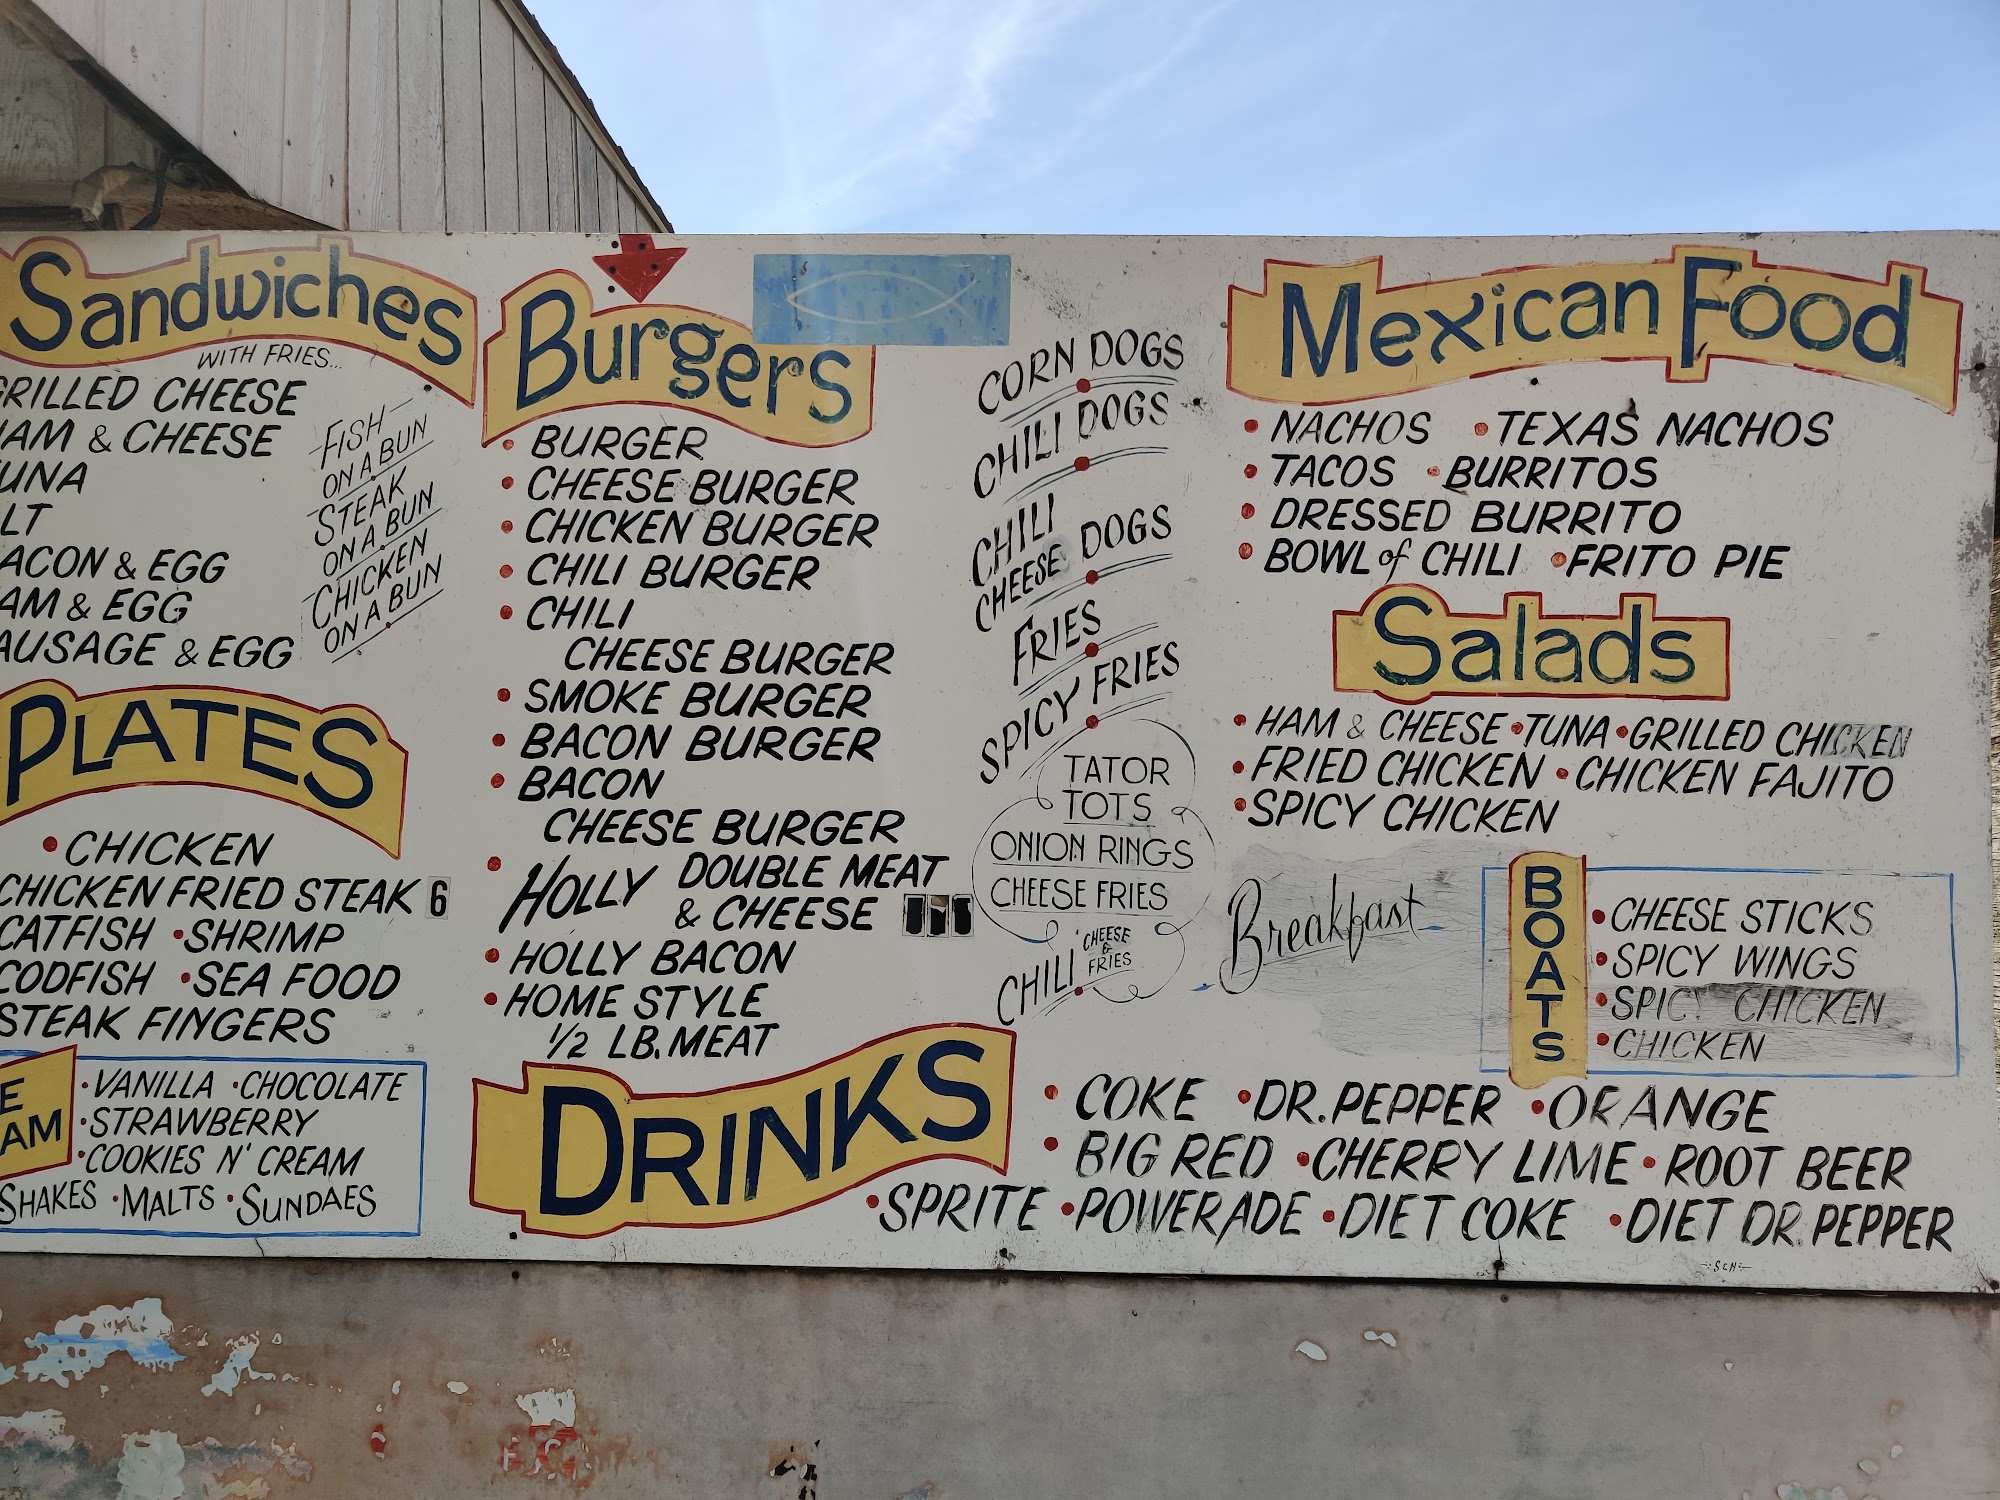 Sandwiches
WITH FRIES...
GRILLED CHEESE
HAM & CHEESE
TUNA
BLT
BACON & EGG
HAM & EGG
SAUSAGE & EGG
FISH
ON A BUN
STEAK
ON A BUN
CHICKEN
ON A BUN
PLATES
• CHICKEN
CHICKEN FRIED STEAK 6
CATFISH • SHRIMP
CODFISH • SEA FOOD
STEAK FINGERS
• VANILLA • CHOCOLATE
• STRAWBERRY
• COOKIES N' CREAM
SHAKES • MALTS • SUNDAES
Burgers
• BURGER
• CHEESE BURGER
• CHICKEN BURGER
• CHILI BURGER
• CHILI
CHEESE BURGER
• SMOKE BURGER
• BACON BURGER
• BACON
CHEESE BURGER
• HOLLY DOUBLE MEAT
& CHEESE
• HOLLY BACON
• HOME STYLE
1/2 LB. MEAT
CORN DOGS
CHILI DOGS
CHILI
CHEESE DOGS
FRIES
SPICY FRIES
TATOR
TOTS
ONION RINGS
CHEESE FRIES
CHILI CHEESE
&
FRIES
Mexican Food
• NACHOS • TEXAS NACHOS
• TACOS • BURRITOS
• DRESSED BURRITO
• BOWL of CHILI • FRITO PIE
Salads
• HAM & CHEESE • TUNA • GRILLED CHICKEN
• FRIED CHICKEN • CHICKEN FAJITO
• SPICY CHICKEN
Breakfast
BOATS
• CHEESE STICKS
• SPICY WINGS
• SPICY CHICKEN
• CHICKEN
DRINKS
• COKE • DR. PEPPER • ORANGE
• BIG RED • CHERRY LIME • ROOT BEER
• SPRITE • POWERADE • DIET COKE • DIET DR. PEPPER